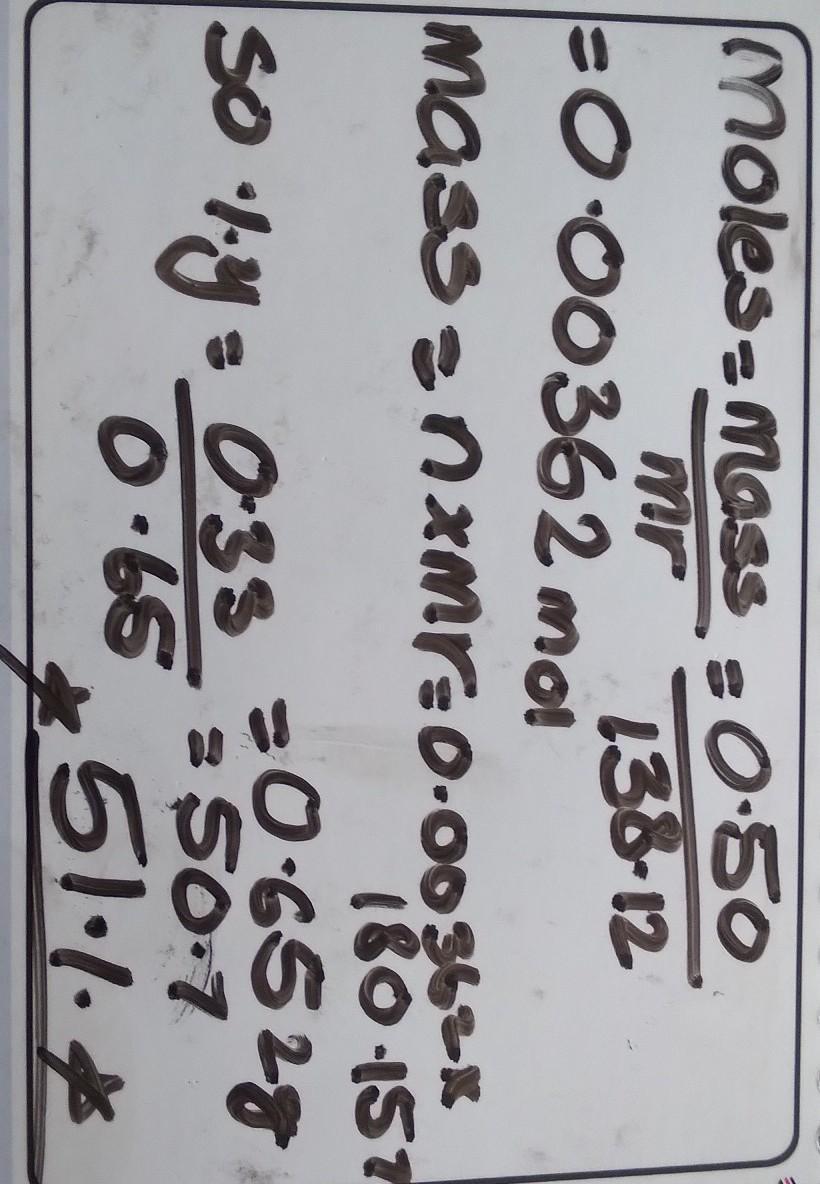 Moles = mass/mr = 0.50/138.12
= 0.00362 mol
mass = n x Mr = 0.00362 x 180.157
= 0.652g
so %y = 0.33/0.65 = 50.7
* 51% *